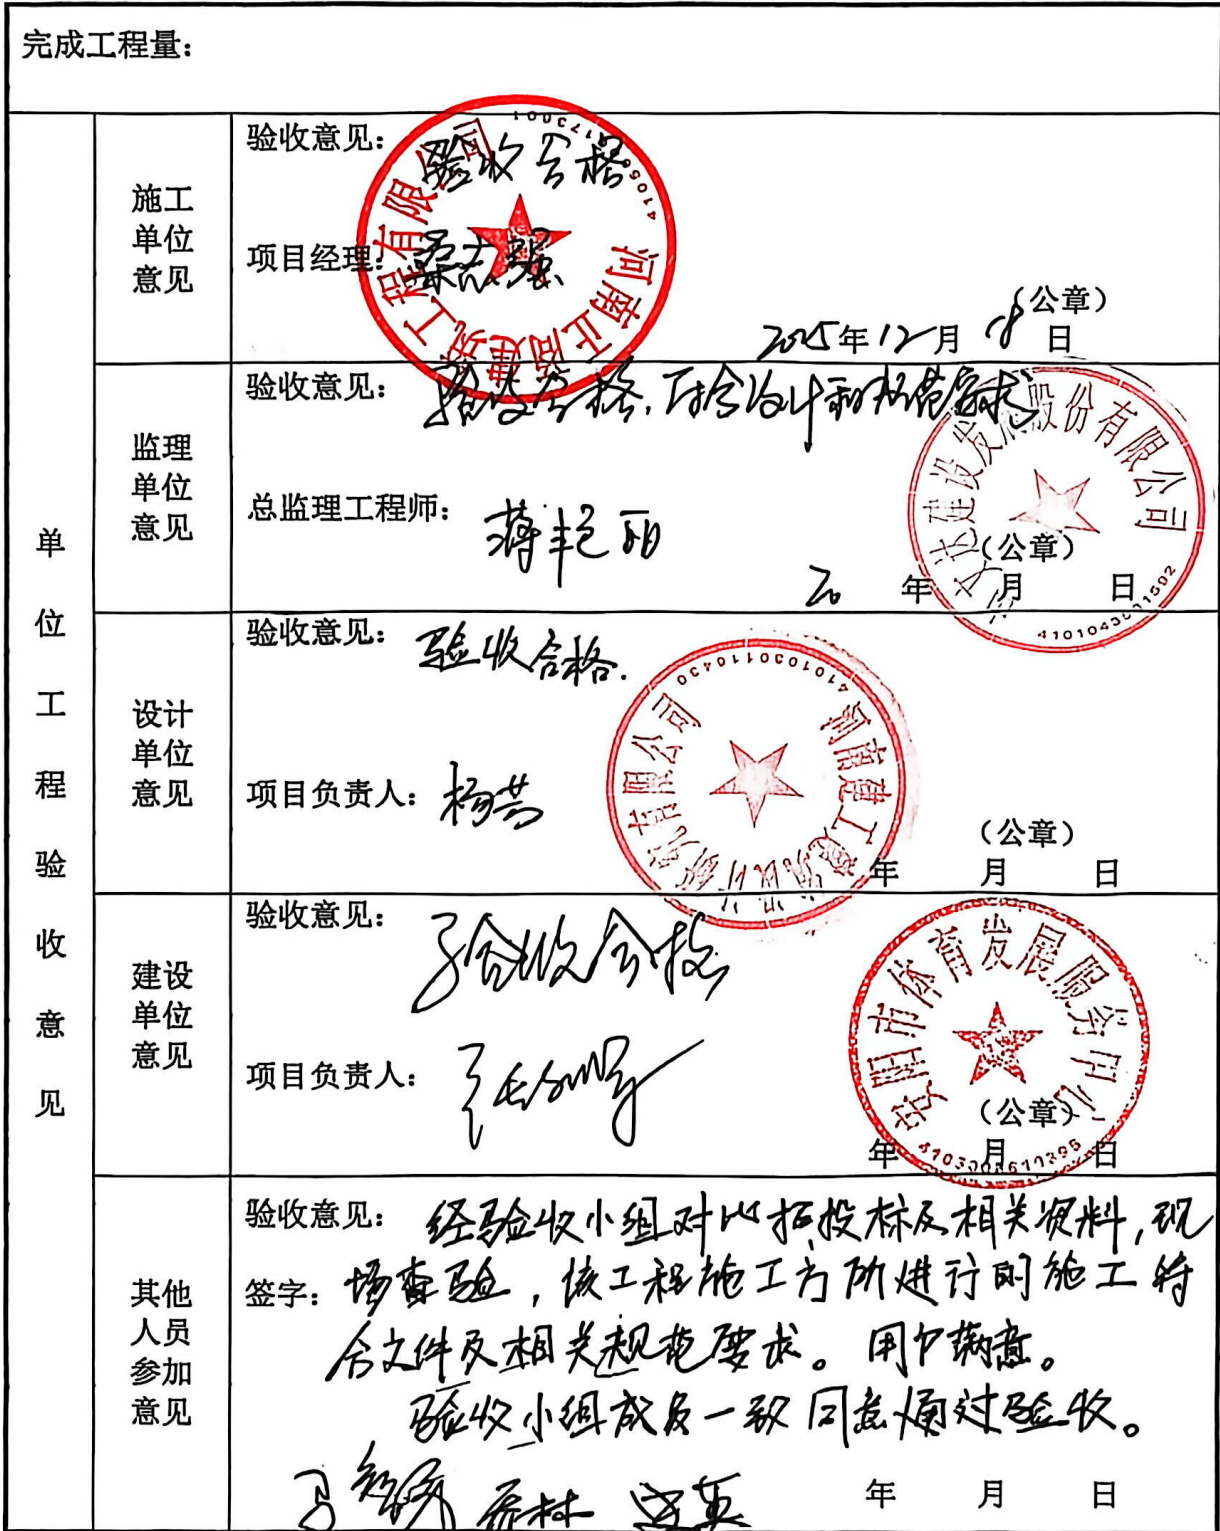 完成工程量：
单位工程验收意见
施工单位意见
验收意见：验收合格
项目经理：
（公章）
2025年12月8日
河南正商建筑工程有限公司
监理单位意见
验收意见：验收合格，符合设计和规范要求
总监理工程师：蒋艳丽
（公章）
20 年 月 日
建设发展股份有限公司
设计单位意见
验收意见：验收合格.
项目负责人：杨芸
（公章）
年 月 日
4101030110430
建设单位意见
验收意见：验收合格
项目负责人：
（公章）
年 月 日
安阳市体育发展服务中心
其他人员参加意见
验收意见：经验收小组对比招投标及相关资料，现
签字：场查验，该工程施工方所进行的施工符
合文件及相关规范要求。用户满意。
验收小组成员一致同意通过验收。
年 月 日